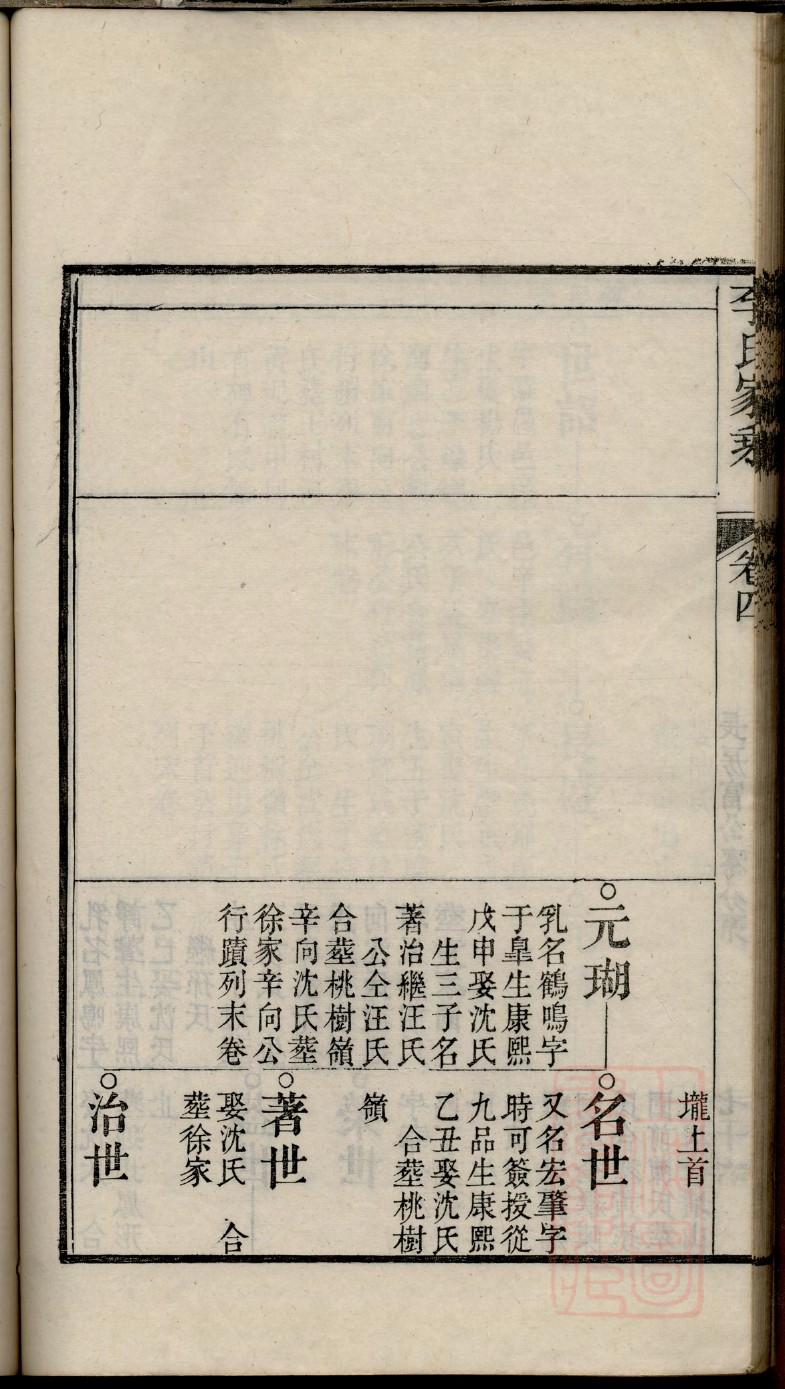 李氏家乘
卷四
壠上首
元瑚
乳名鶴鳴字
于臯生康熙
戊申娶沈氏
生三子名
著治繼汪氏
公仝汪氏
合塟桃樹嶺
辛向沈氏塟
徐家辛向公
行蹟列末卷
名世
又名宏肇字
時可簽授從
九品生康熙
乙丑娶沈氏
合塟桃樹
嶺
著世
娶沈氏 合
塟徐家
治世